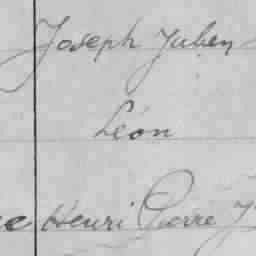 Joseph Julien
Léon
Henri Pierre J